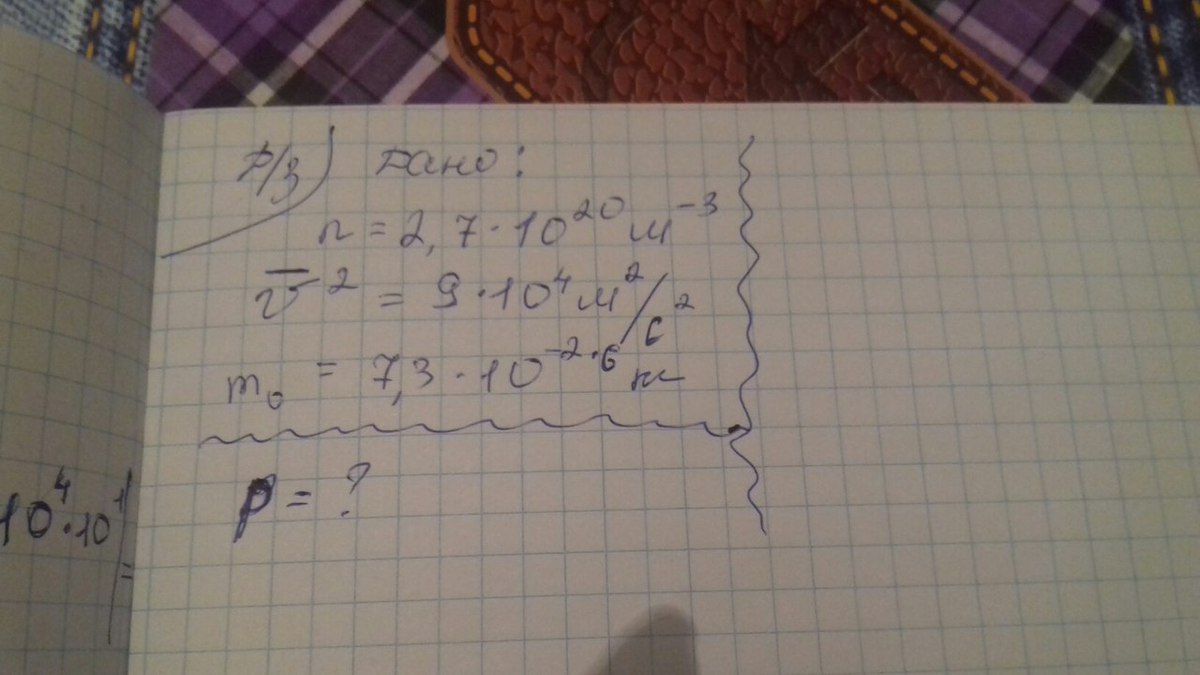 Д/З) Дано:
n = 2,7·10²⁰ м⁻³
v̅² = 9·10⁴ м²/с²
m₀ = 7,3·10⁻²·⁶ кг
P = ?
10⁴·10
=